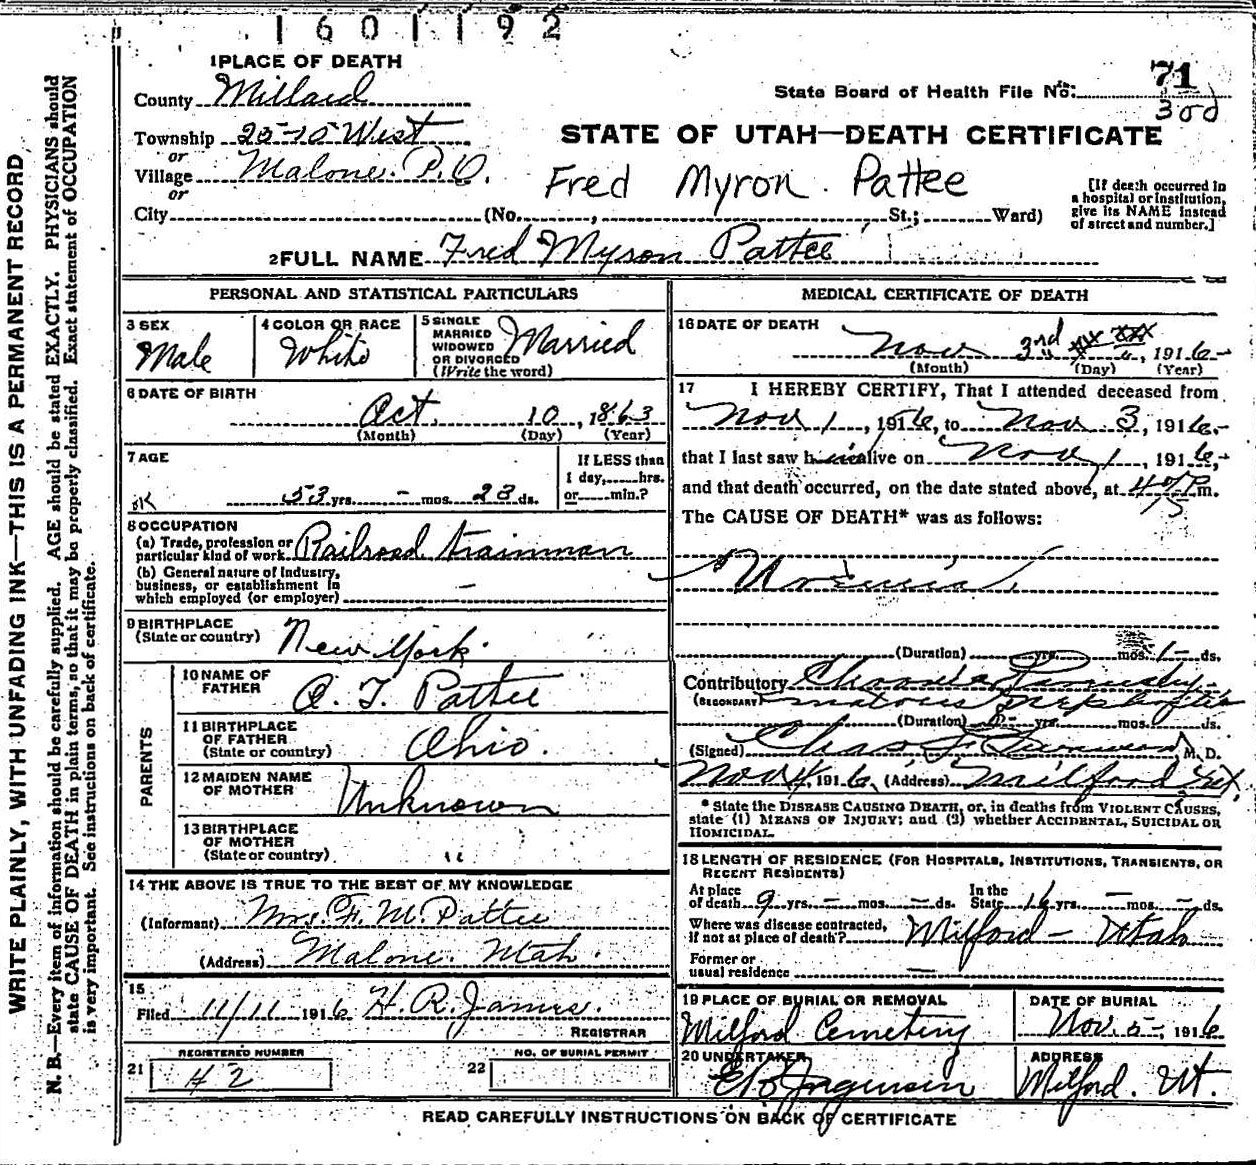 1601192
1 PLACE OF DEATH
County Millard
State Board of Health File No. 71
300
Township 25-10 West
or
Village Malone. P.O.
or
City (No. , St.; Ward)
STATE OF UTAH—DEATH CERTIFICATE
Fred Myron Pattee
[If death occurred in
a hospital or institution,
give its NAME instead
of street and number.]
2 FULL NAME Fred Myron Pattee
PERSONAL AND STATISTICAL PARTICULARS
3 SEX
Male
4 COLOR OR RACE
White
5 SINGLE
MARRIED
WIDOWED
OR DIVORCED
(Write the word)
Married
6 DATE OF BIRTH
Oct. 10, 1863
(Month) (Day) (Year)
7 AGE
OK
53 yrs. - mos. 23 ds.
If LESS than
1 day, hrs.
or min.?
8 OCCUPATION
(a) Trade, profession or
particular kind of work Railroad trainman
(b) General nature of Industry,
business, or establishment in
which employed (or employer) -
9 BIRTHPLACE
(State or country) New York.
PARENTS
10 NAME OF
FATHER
Pattee
11 BIRTHPLACE
OF FATHER
(State or country) Ohio.
12 MAIDEN NAME
OF MOTHER Unknown
13 BIRTHPLACE
OF MOTHER
(State or country) "
14 THE ABOVE IS TRUE TO THE BEST OF MY KNOWLEDGE
(Informant) Mrs. F. M. Pattee
(Address) Malone. Utah.
15
Filed 11/11 1916 H. R. James.
REGISTRAR
REGISTERED NUMBER
21 42
NO. OF BURIAL PERMIT
22
MEDICAL CERTIFICATE OF DEATH
16 DATE OF DEATH
Nov 3rd, 1916-
(Month) (Day) (Year)
17 I HEREBY CERTIFY, That I attended deceased from
Nov 1, 1916, to Nov 3, 1916.-
that I last saw him alive on Nov 1, 1916,-
and that death occurred, on the date stated above, at P.m.
The CAUSE OF DEATH* was as follows:
Uremia
(Duration) yrs. mos. 1- ds.
Contributory Chronic
(SECONDARY)
(Duration) yrs. mos. ds.
(Signed) Chas M. D.
Nov 4, 1916, (Address) Milford Ut.
* State the DISEASE CAUSING DEATH, or, in deaths from VIOLENT CAUSES,
state (1) MEANS OF INJURY; and (2) whether ACCIDENTAL, SUICIDAL OR
HOMICIDAL.
18 LENGTH OF RESIDENCE (FOR HOSPITALS, INSTITUTIONS, TRANSIENTS, OR
RECENT RESIDENTS)
At place
of death 9 yrs. - mos. - ds.
In the
State 16 yrs. - mos. - ds.
Where was disease contracted,
if not at place of death? Milford - Utah
Former or
usual residence -
19 PLACE OF BURIAL OR REMOVAL
Milford Cemetery
DATE OF BURIAL
Nov. 5-, 1916
20 UNDERTAKER
Jorgensen
ADDRESS
Milford. Ut.
READ CAREFULLY INSTRUCTIONS ON BACK OF CERTIFICATE
WRITE PLAINLY, WITH UNFADING INK—THIS IS A PERMANENT RECORD
N. B.—Every item of information should be carefully supplied. AGE should be stated EXACTLY. PHYSICIANS should
state CAUSE OF DEATH in plain terms, so that it may be properly classified. Exact statement of OCCUPATION
is very important. See instructions on back of certificate.